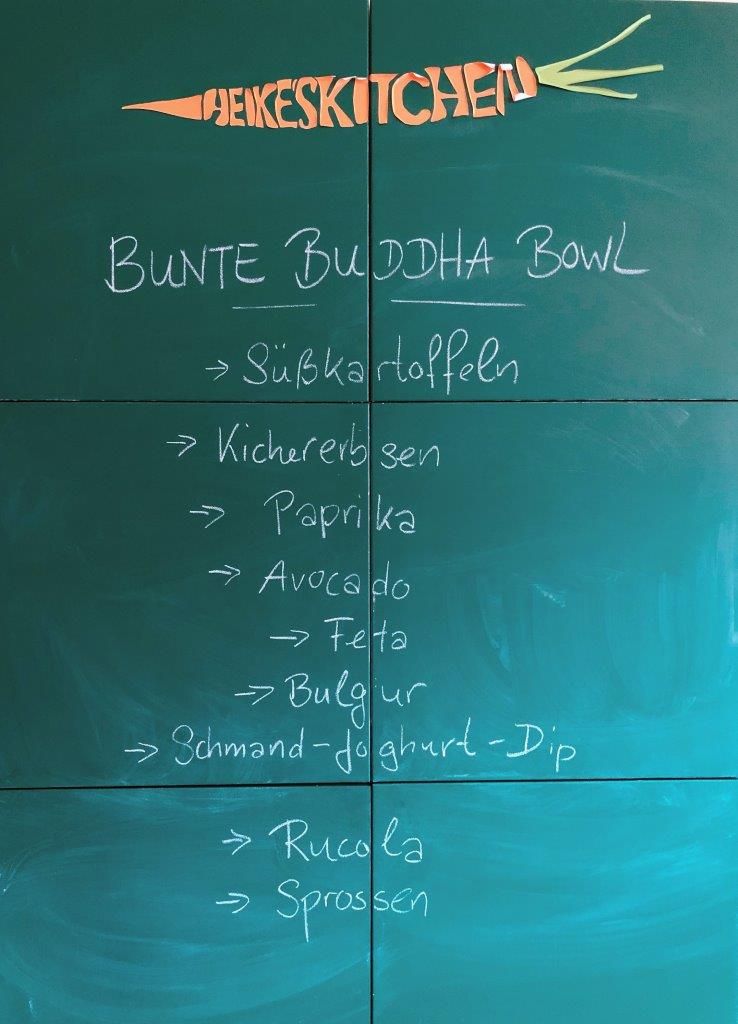 HEIKE'SKITCHEN
BUNTE BUDDHA BOWL
→ Süßkartoffeln
→ Kichererbsen
→ Paprika
→ Avocado
→ Feta
→ Bulgur
→ Schmand-Joghurt-Dip
→ Rucola
→ Sprossen